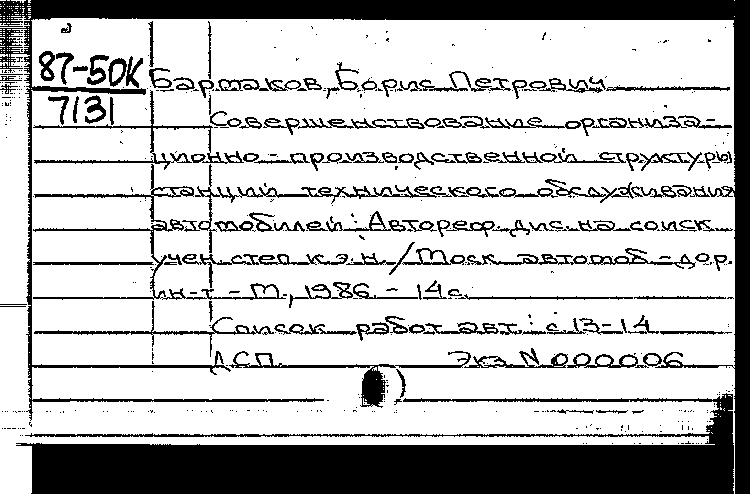 87-50К
7131
Бармаков, Борис Петрович
Совершенствование организа-
ционно-производственной структуры
станций технического обслуживания
автомобилей: Автореф. дис. на соиск.
учен. степ. к.э.н. / Моск. автомоб.-дор.
ин-т. - М., 1986. - 14 с.
Список работ авт.: с. 13-14
ДСП. Экз. N 000006